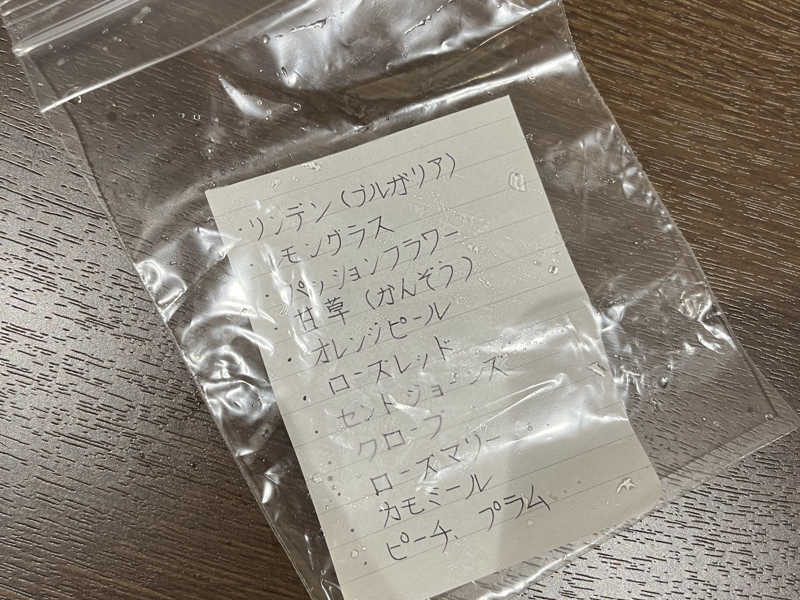 ・リンデン(ブルガリア)
・レモングラス
・パッションフラワー
・甘草(かんぞう)
・オレンジピール
・ローズレッド
・セントジョーンズ
・クローブ
・ローズマリー
・カモミール
・ピーチ、プラム